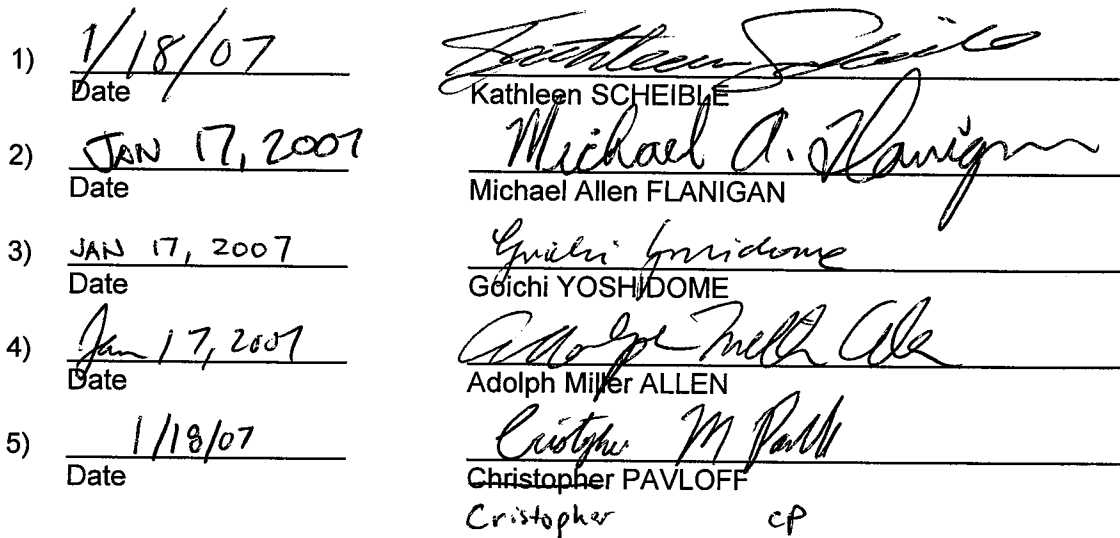 1) 1/18/07 Kathleen Scheible
Date Kathleen SCHEIBLE
2) JAN 17, 2007 Michael A. Flanigan
Date Michael Allen FLANIGAN
3) JAN 17, 2007 Goichi Yoshidome
Date Goichi YOSHIDOME
4) Jan 17, 2007 Adolph Miller Allen
Date Adolph Miller ALLEN
5) 1/18/07 Cristopher M Pavloff
Date Christopher PAVLOFF
Cristopher CP